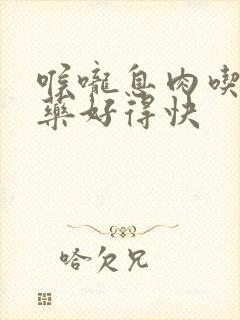 喉嚨息肉喫
藥好得快
哈欠兄